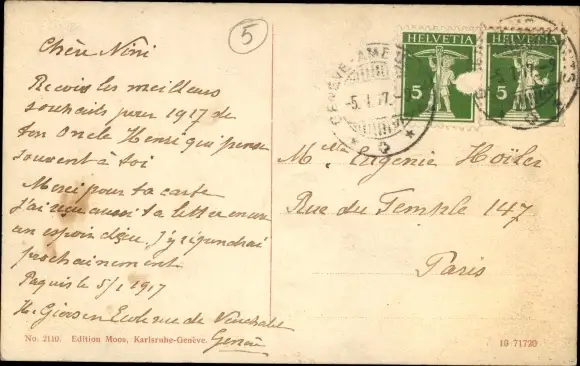 5
Chère Nini
Recois les meilleurs
souhaits pour 1917 de
ton Oncle Henri qui pense
souvent à toi
Merci pour ta carte
j'ai reçu aussi ta lettre
un espoir déçu, j'y répondrai
prochainement
Paquis le 5/1 1917
Ecole rue de Neuchatel
Genève
HELVETIA
5
HELVETIA
5
GENÈVE
-5. I. 17.
Mlle Eugenie Hoïler
Rue du Temple 147
Paris
No. 2110. Edition Moos, Karlsruhe-Genève.
10 71720